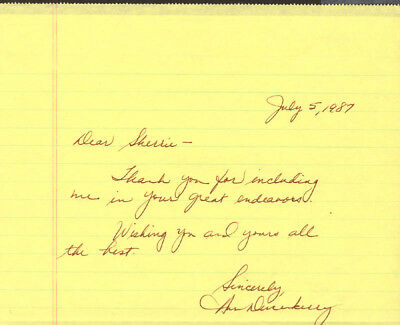 July 5, 1987
Dear Sherrie —
Thank you for including
me in your great endeavors.
Wishing you and yours all
the best.
Sincerely
Ann